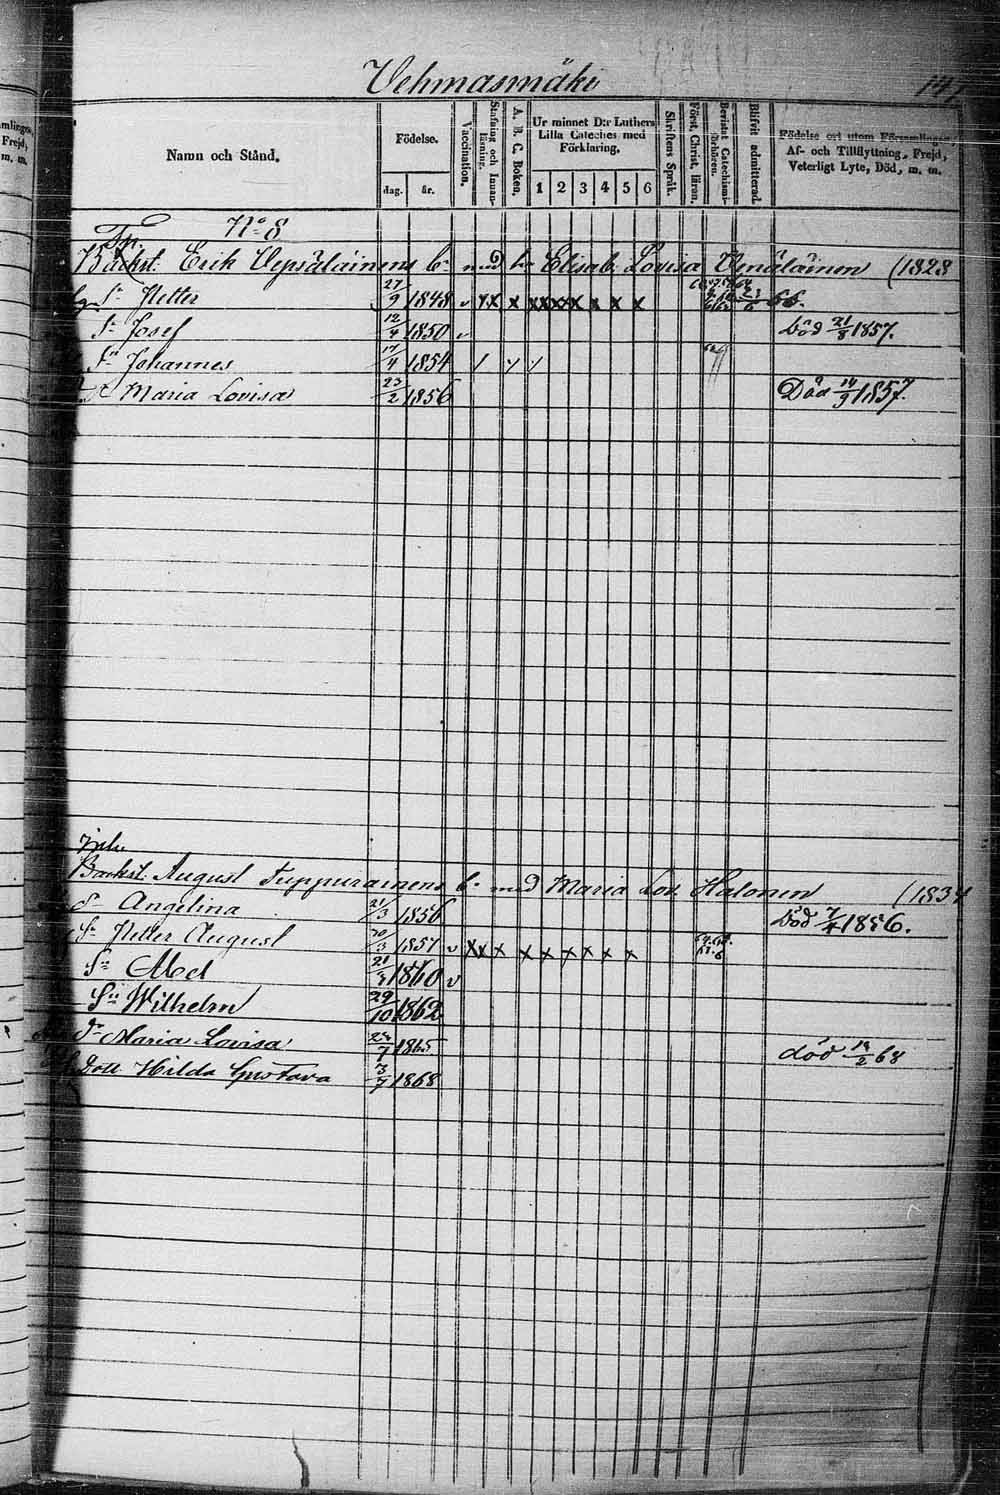 Vehmasmäki 147
Namn och Stånd.
Födelse.
dag. år.
Vaccination.
Stafning och Innanläsning.
A. B. C. Boken.
Ur minnet D:r Luthers Lilla Cateches med Förklaring.
1 2 3 4 5 6
Skriftens Språk.
Först. Christ. läran.
Bevista Catechismi-förhören.
Blifvit admitterad.
Födelse ort utom Församlingen, Af- och Tillflyttning, Frejd, Veterligt Lyte, Död, m. m.
No 8
Backst. Erik Vepsäläinens b. med h. Elisab. Lovisa (1828
Sn Petter 27/9 1848 v x x x x x x x x x 66.
Sn Josef 12/4 1850 v död 21/8 1857.
Sn Johannes 17/4 1854
Maria Lovisa 23/2 1856 Död 14/9 1857.
Backst. August Tuppurainens b. med Maria Lov. Halonen (1834
D. Angelina 21/3 1856 död 7/4 1856.
Sn Petter August 20/3 1857 v x x x x x x x x x
Sn Abel 21/3 1860 v
Sn Wilhelm 29/10 1862
Dr Maria Lovisa 1865 död 68
Dott Hilda Gustava 3/7 1868